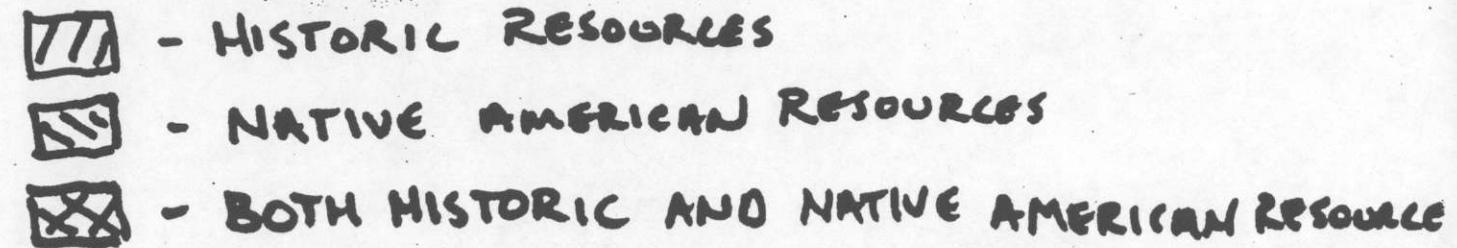 - HISTORIC RESOURCES
- NATIVE AMERICAN RESOURCES
- BOTH HISTORIC AND NATIVE AMERICAN RESOURCE